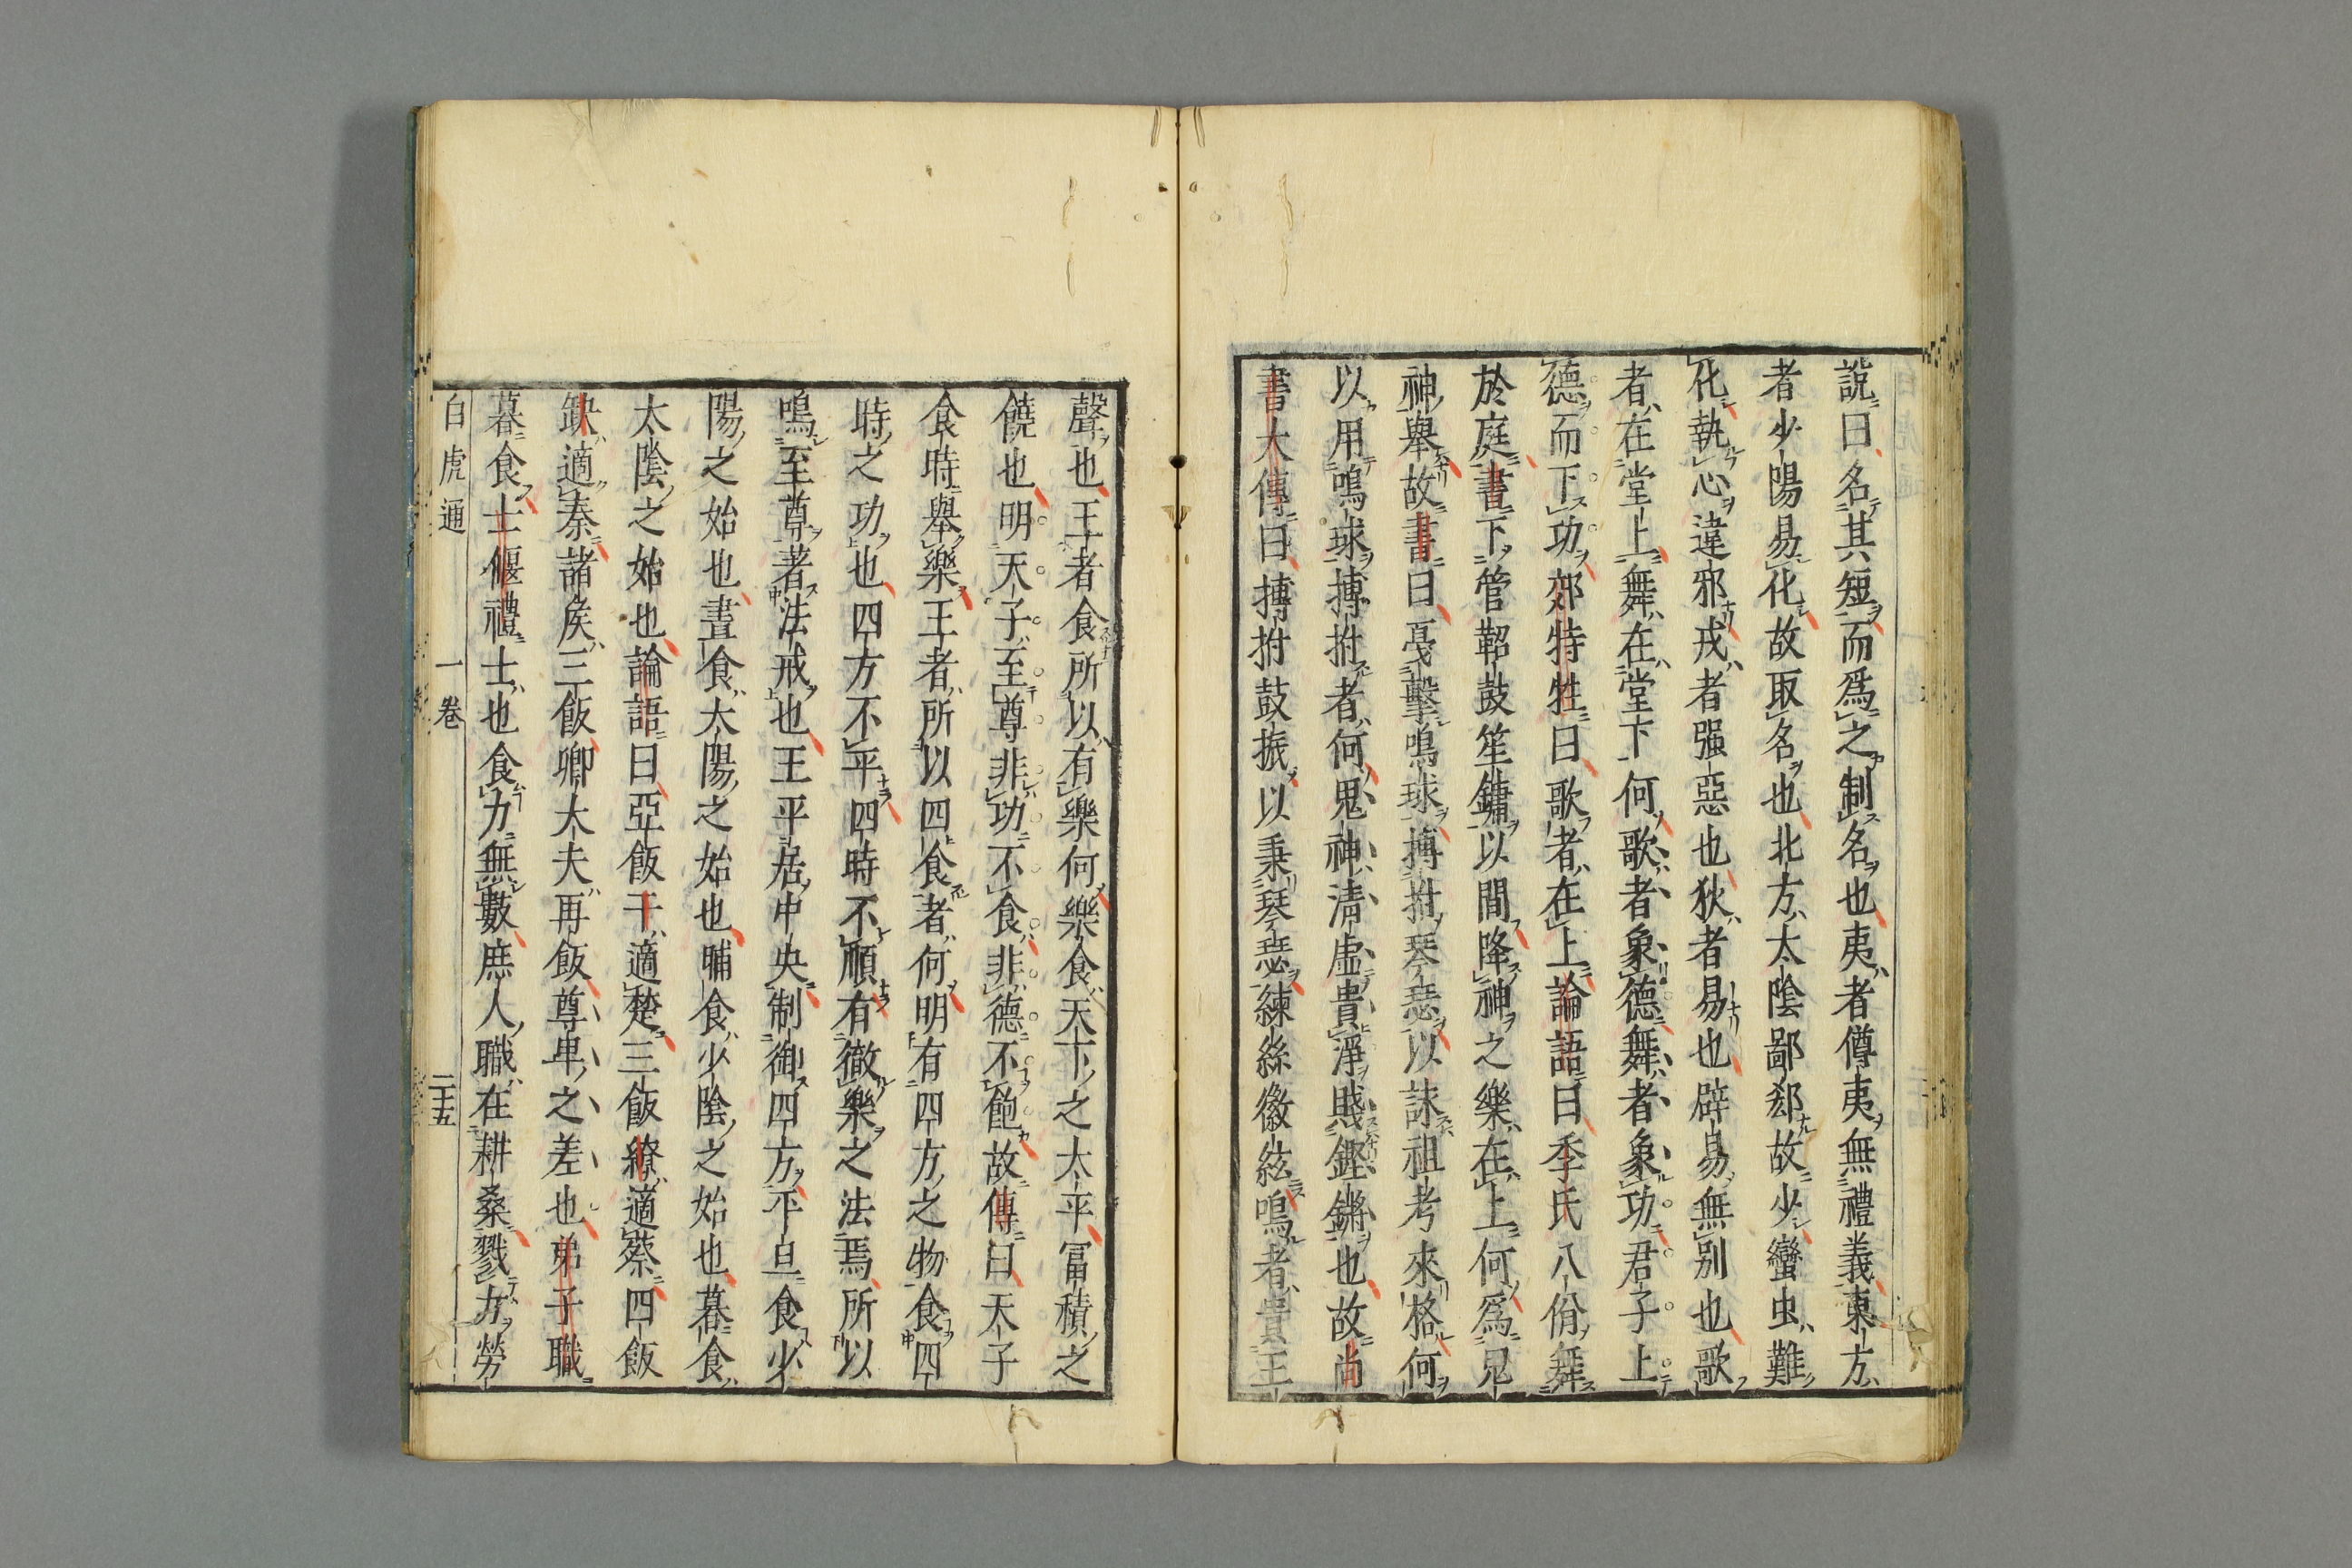 說曰名其短而爲之制名也夷者僔夷無禮義東方
者少陽易化故取名也北方太陰鄙郄故少蠻虫難
化執心違邪戎者强惡也狄者易也辟易無别也歌
者在堂上舞在堂下何歌者象德舞者象功君子上
德而下功郊特牲曰歌者在上論語曰季氏八佾舞
於庭書下管鞀鼓笙鏞以間降神之樂在上何爲
神舉故書曰戞擊鳴球搏拊琴瑟以詠祖考來格何
以用鳴球搏拊者何鬼神清虛貴淨賤鏗鏘也故尚
書大傳曰搏拊鼓振以秉琴瑟練絲徽絃鳴者貴王
聲也王者食所以有樂何樂食天下之太平冨積之
饒也明天子至尊非功不食非德不飽故傳曰天子
食時舉樂王者所以四食者何明有四方之物食四
時之功也四方不平四時不順有徹樂之法焉所以
鳴至尊著法戒也王平居中央制御四方平旦食少
陽之始也晝食太陽之始也晡食少陰之始也暮食
太陰之始也論語曰亞飯干適楚三飯繚適蔡四飯
缺適秦諸矦三飯卿大夫再飯尊卑之差也弟子職
暮食士偃禮士也食力無數庶人職在耕桑戮力勞
白虎通
一卷
二十五